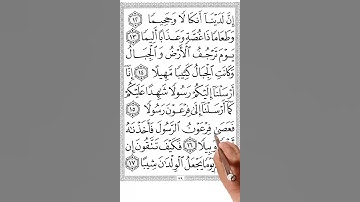 إِنَّ لَدَيْنَآ أَنكَالًا وَجَحِيمًا ١٢
وَطَعَامًا ذَا غُصَّةٍ وَعَذَابًا أَلِيمًا ١٣
يَوْمَ تَرْجُفُ ٱلْأَرْضُ وَٱلْجِبَالُ
وَكَانَتِ ٱلْجِبَالُ كَثِيبًا مَّهِيلًا ١٤ إِنَّآ
أَرْسَلْنَآ إِلَيْكُمْ رَسُولًا شَٰهِدًا عَلَيْكُمْ
كَمَآ أَرْسَلْنَآ إِلَىٰ فِرْعَوْنَ رَسُولًا ١٥
فَعَصَىٰ فِرْعَوْنُ ٱلرَّسُولَ فَأَخَذْنَٰهُ
وَبِيلًا ١٦ فَكَيْفَ تَتَّقُونَ إِن
يَوْمًا يَجْعَلُ ٱلْوِلْدَٰنَ شِيبًا ١٧